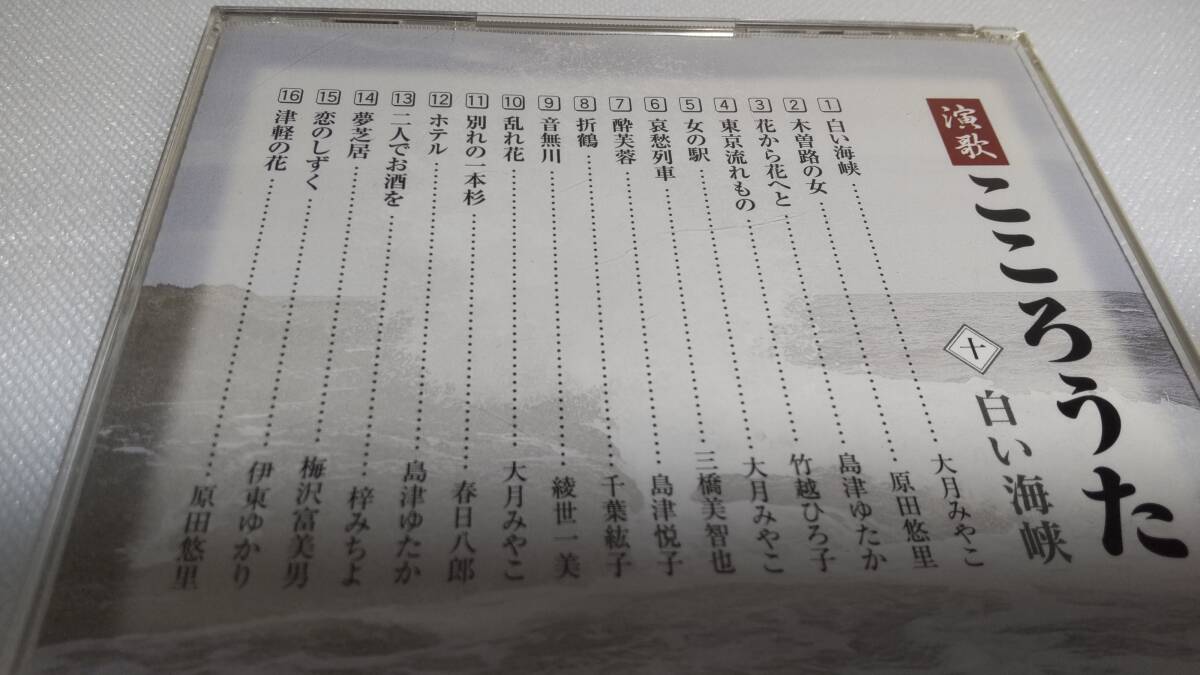 演歌
こころうた
十 白い海峡
1 白い海峡 大月みやこ
2 木曽路の女 原田悠里
3 花から花へと 島津ゆたか
4 東京流れもの 竹越ひろ子
5 女の駅 大月みやこ
6 哀愁列車 三橋美智也
7 酔芙蓉 島津悦子
8 折鶴 千葉紘子
9 音無川 綾世一美
10 乱れ花 大月みやこ
11 別れの一本杉 春日八郎
12 ホテル 島津ゆたか
13 二人でお酒を 梓みちよ
14 夢芝居 梅沢富美男
15 恋のしずく 伊東ゆかり
16 津軽の花 原田悠里